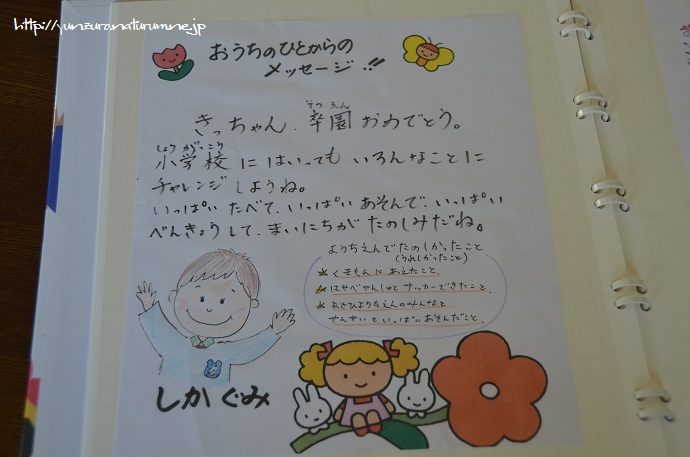 http://yunzuro.naturum.ne.jp
おうちのひとからの
メッセージ!!
きっちゃん、卒園おめでとう。
そつ えん
しょう がっこう
小学校にはいっても いろんなことに
チャレンジしようね。
いっぱい たべて、いっぱい あそんで、いっぱい
べんきょうして、まいにちが たのしみだね。
ようちえんでたのしかったこと
(うれしかったこと)
くまもんにあえたこと。
はせべやんしゅとサッカーできたこと。
あさひようちえんのみんなと
せんせいといっぱいあそんだこと。
しかぐみ